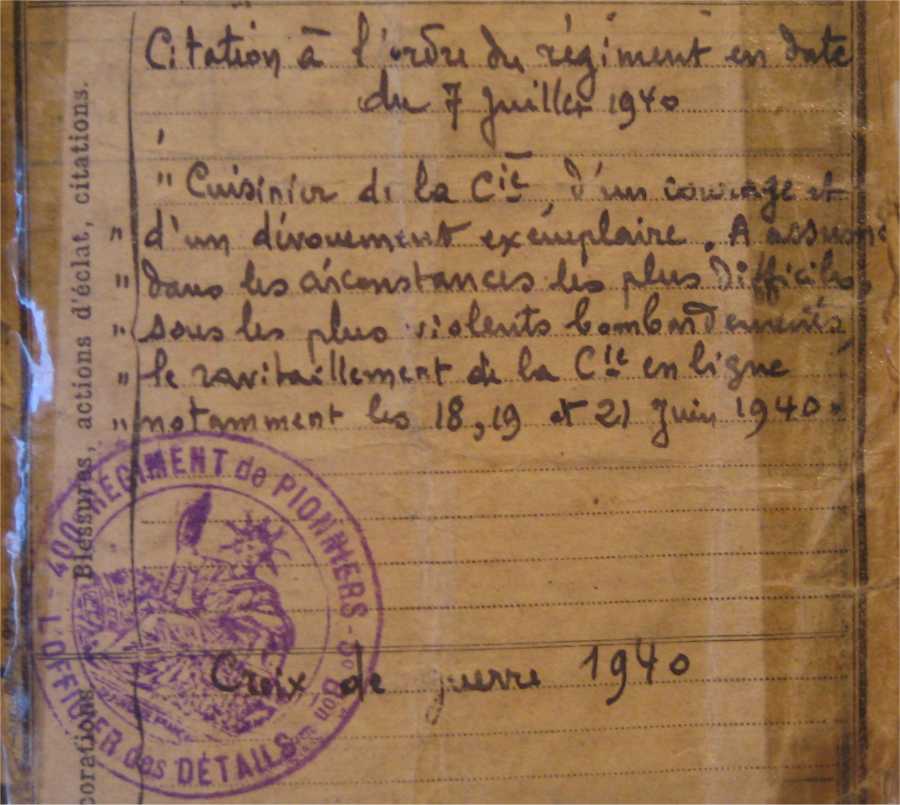 Citation à l'ordre du régiment en date
du 7 Juillet 1940
" Cuisinier de la Cie, d'un courage et
" d'un dévouement exémplaire. A assuré
" dans les circonstances les plus difficiles,
" sous les plus violents bombardements,
" le ravitaillement de la Cie en ligne
" notamment les 18, 19 et 21 Juin 1940.
Croix de guerre 1940
Blessures, actions d'éclat, citations.
corations
400e RÉGIMENT de PIONNIERS - 5e Bon
L'OFFICIER des DÉTAILS